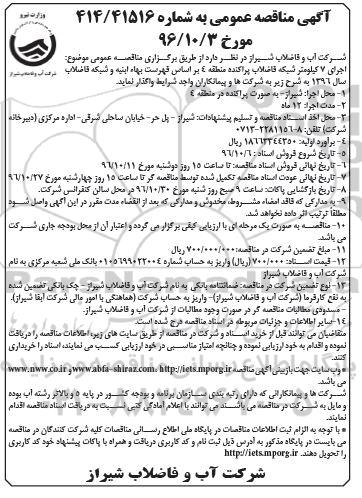 وزارت نیرو
شرکت آب و فاضلاب شیراز
آگهی مناقصه عمومی به شماره ۴۱۴/۴۱۵۱۶
مورخ ۹۶/۱۰/۳
شرکت آب و فاضلاب شیراز در نظر دارد از طریق برگزاری مناقصه عمومی موضوع:
اجرای ۷ کیلومتر شبکه فاضلاب پراکنده منطقه ٤ بر اساس فهرست بهاء ابنیه و شبکه فاضلاب
سال ۱۳۹٦ به شرح زیر به شرکت ها و پیمانکاران واجد شرایط واگذار نماید.
۱- محل اجرا: شیراز- به صورت پراکنده در منطقه ٤
۲- مدت اجرا: ۱۲ ماه
۳- محل اخذ اسناد مناقصه و تسلیم پیشنهادات: شیراز - پل حر- خیابان ساحلی شرقی- اداره مرکزی (دبیرخانه
شرکت) تلفن: ۸-۲۲۸۱۱۵٦-۰۷۱۳
٤- برآورد اولیه: ۱۸٦٦۳۳٤٤۳۵۰ ریال
۵- تاریخ شروع فروش اسناد: ۹٦/۱۰/٦
٦- تاریخ نهائی فروش اسناد مناقصه: تا ساعت ۱۵ روز دوشنبه مورخ ۹٦/۱۰/۱۱
۷- تاریخ نهائی عودت اسناد مناقصه تکمیل شده توسط مناقصه گر تا ساعت ۱۵ روز چهارشنبه مورخ ۹٦/۱۰/۲۷
۸- تاریخ بازگشایی پاکات: ساعت ۹ صبح روز شنبه مورخ ۹٦/۱۰/۳۰ در محل سالن کنفرانس شرکت.
۹- به مدارکی که فاقد امضاء مشروط، مخدوش و مدارکی که بعد از انقضاء مدت مقرر در این آگهی واصل شود
مطلقا ترتیب اثر داده نخواهد شد.
۱۰- مناقصه به صورت یک مرحله ای با ارزیابی کیفی برگزار می گردد و اعتبار آن از محل بودجه جاری شرکت می
باشد.
۱۱- مبلغ تضمین شرکت در مناقصه: ۷۰۰/۰۰۰/۰۰۰ ریال
۱۲- قیمت اسناد: (۷۰۰/۰۰۰ ریال) واریز به حساب شماره ۰۱۰۵٦۹۹۰۲۲۰۰٤ بانک ملی شعبه مرکزی به نام
شرکت آب و فاضلاب شیراز
۱۳- نوع تضمین شرکت در مناقصه: ضمانتنامه بانکی به نام شرکت آب و فاضلاب شیراز- چک بانکی تضمین شده
به نفع کارفرما (شرکت آب و فاضلاب شیراز)- واریز به حساب شرکت (هماهنگی با امور مالی شرکت آبفا شیراز).
- مسدودی مطالبات مناقصه گر در صورت وجود مطالبات از شرکت آب و فاضلاب شیراز.
۱٤- سایر اطلاعات و جزئیات مربوطه در اسناد مناقصه درج شده است.
متقاضیان می توانند قبل از خرید اسناد و شرکت در مناقصه از طریق سایت های زیر، اطلاعات مناقصه را دریافت
نموده و اقدام به خود ارزیابی نموده و چنانچه امتیاز مناسبی در خود ارزیابی کسب می نمایند، اسناد را خریداری
کنند.
* وب سایت جهت بازبینی آگهی مناقصه http://iets.mporg.ir ،www.abfa-shiraz.com و www.nww.co.ir
می باشد.
* شرکت ها و پیمانکارانی که دارای رتبه بندی سازمان برنامه و بودجه کشور در پایه ۵ و بالاتر رشته آب بوده
و مایل به شرکت در مناقصه می باشند می توانند با اعلام آمادگی کتبی نسبت به دریافت اسناد مناقصه اقدام
نمایند.
* با توجه به الزام ثبت اطلاعات مناقصات در پایگاه ملی اطلاع رسانی مناقصات کلیه شرکت کنندگان در مناقصه
می بایست در پایگاه مذکور به آدرس ذیل ثبت نام و کد کاربری دریافت و همراه با پاکات پیشنهاد خود کد کاربری
را تحویل دهند. http://iets.mporg.ir
شرکت آب و فاضلاب شیراز